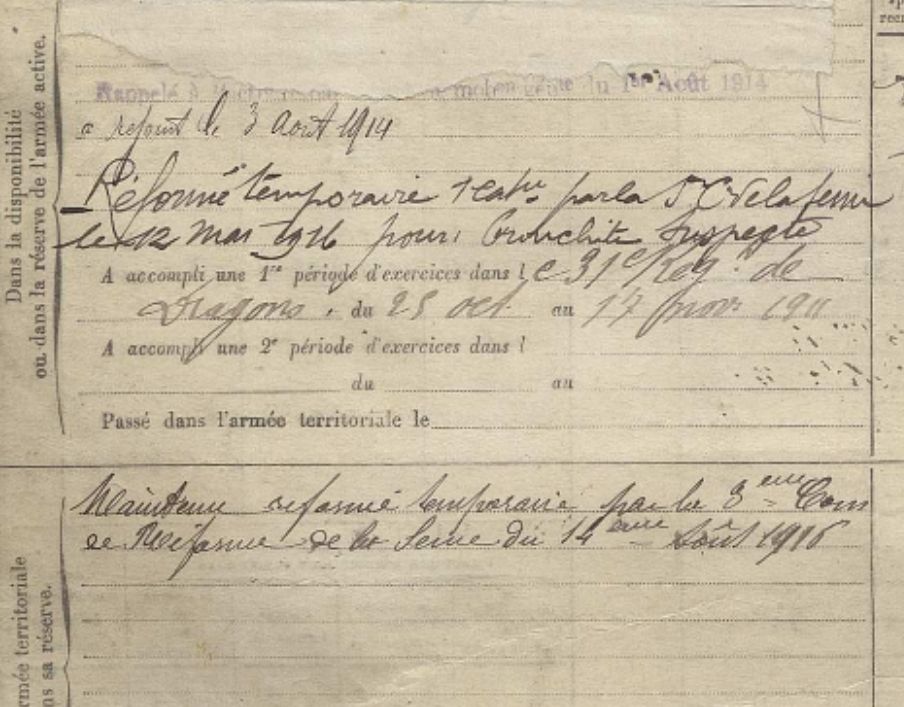 Dans la disponibilité
ou dans la réserve de l'armée active.
Rappelé à du 1er Août 1914
a rejoint le 3 Août 1914
Réformé temporaire par la de la Seine
le 12 Mai 1916 pour: Bronchite suspecte
A accompli une 1re période d'exercices dans l e 31e Rég. de
Dragons. du 25 oct. au 17 nov. 1911
A accompli une 2e période d'exercices dans l
du au
Passé dans l'armée territoriale le
rmée territoriale
ns sa réserve.
Maintenu réformé temporaire par la 3eme Com
de Réforme de la Seine du 14eme Août 1916